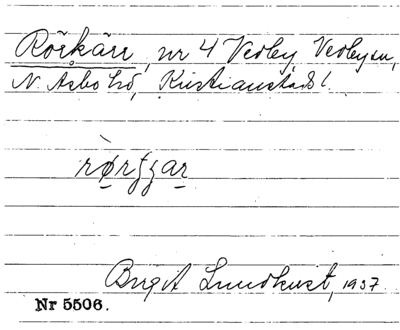 Rörkärr, nr 4 Vedby, Vedby sn,
N. Åsbo hd, Kristianstads l.
rø̀rʈʂar
Birgit Lundkvist, 1937.
Nr 5506.